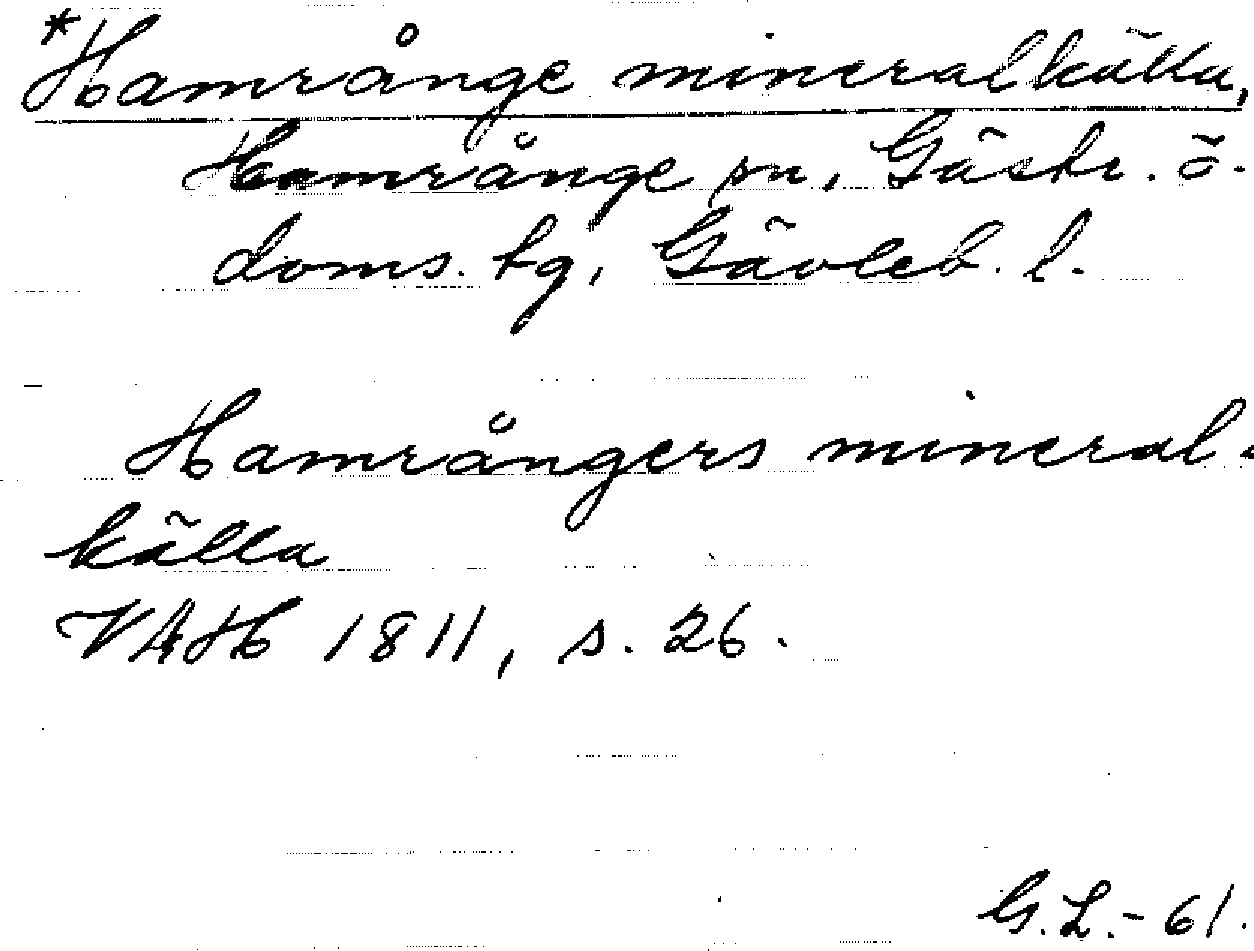 *Hamrånge mineralkälla,
Hamrånge sn, Gästr. ö.
doms. tg, Gävleb. l.
Hamrångers mineral-
källa
VAH 1811, s. 26.
G.L.- 61.